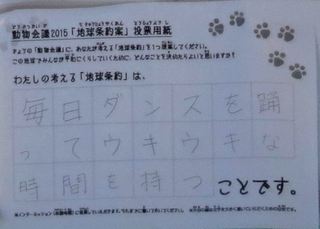 動物会議2015「地球条約案」投票用紙
きょうの「動物会議」に、あなたが考える「地球条約」を1つ提案してください。
この地球でみんなが平和にくらしていくために、どんなことを決めたらよいと思いますか？
わたしの考える「地球条約」は、
毎日ダンスを踊
ってウキウキな
時間を持つ ことです。